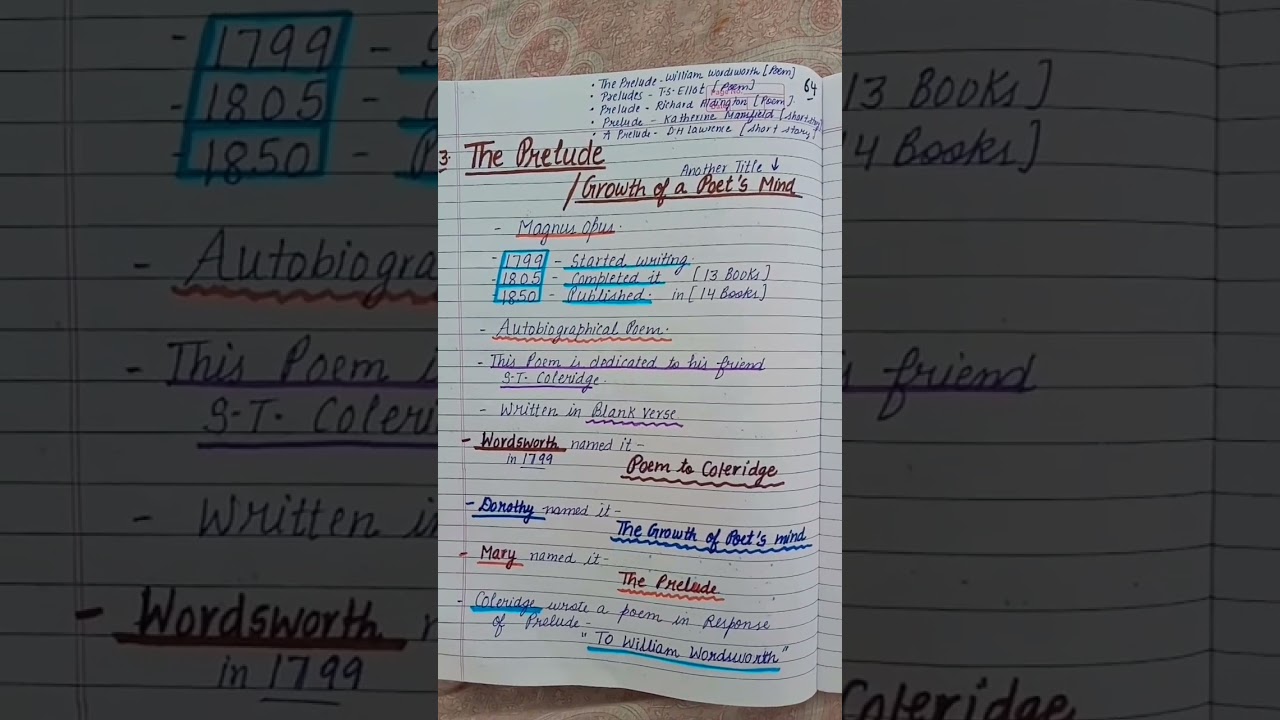 • The Prelude - William Wordsworth [Poem]
64
• Preludes - T.S. Eliot [Poem]
• Prelude - Richard Aldington [Poem]
• Prelude - Katherine Mansfield [short story]
• A Prelude - D.H Lawrence [short story]
3. The Prelude
Another Title ↓
/ Growth of a Poet's Mind
- Magnus Opus.
- 1799 - Started writing.
- 1805 - Completed it [13 Books]
- 1850 - Published. in [14 Books]
- Autobiographical Poem.
- This Poem is dedicated to his friend
S.T. Coleridge.
- Written in Blank Verse
- Wordsworth named it -
in 1799
Poem to Coleridge
- Dorothy named it -
The Growth of Poet's mind
- Mary named it -
The Prelude
- Coleridge wrote a poem in Response
of Prelude -
"To William Wordsworth"